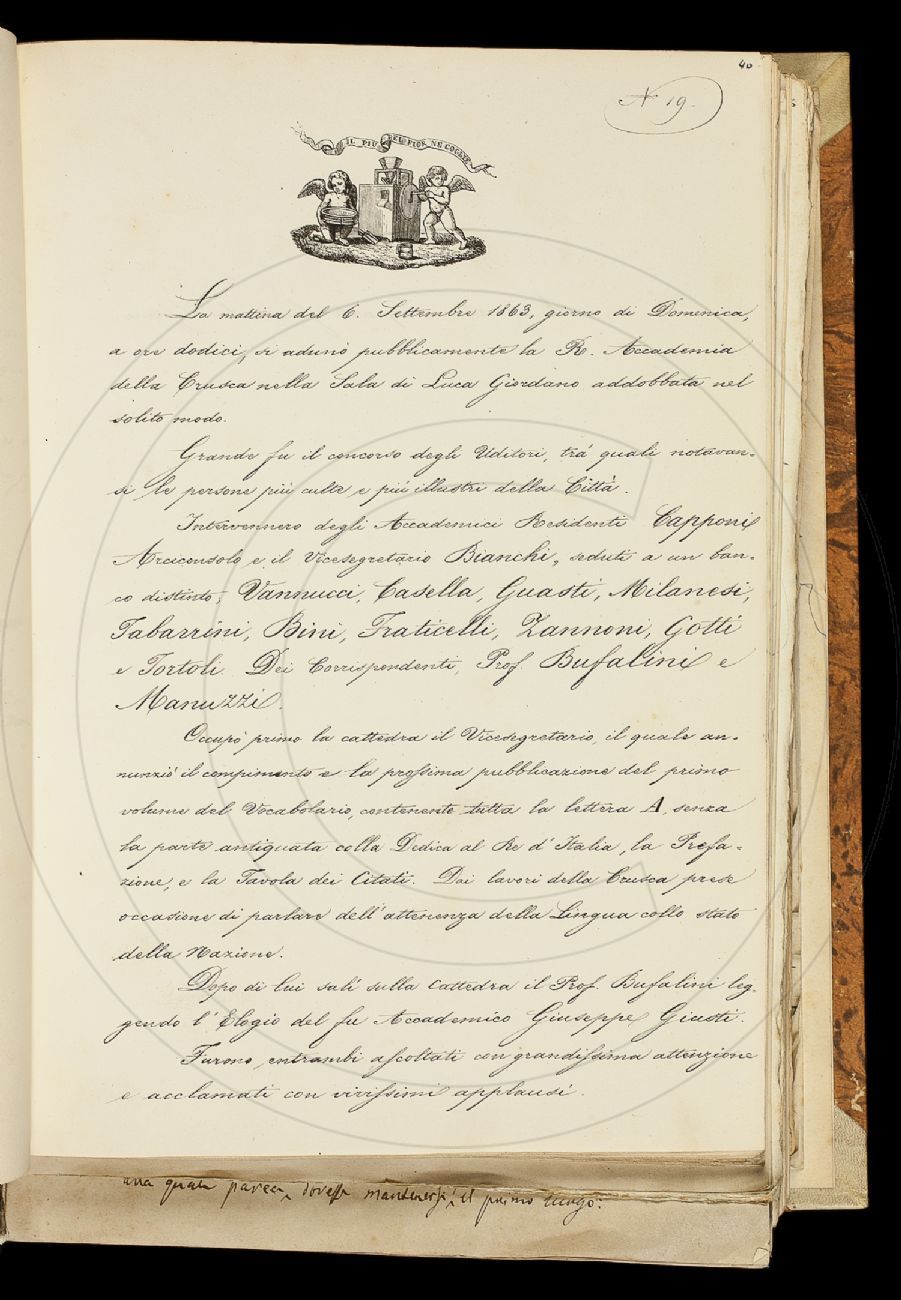 40
N 19.
IL PIÙ BEL FIOR NE COGLIE
La mattina del 6. Settembre 1863, giorno di Domenica,
a ore dodici, si adunò pubblicamente la R. Accademia
della Crusca nella Sala di Luca Giordano addobbata nel
solito modo.
Grande fu il concorso degli Uditori, tra' quali notavan-
si le persone più culte e più illustri della Città.
Intervennero degli Accademici Residenti Capponi
Arciconsolo e il Vicesegretario Bianchi, seduti a un ban-
co distinto; Vannucci, Casella, Guasti, Milanesi,
Tabarrini, Bini, Fraticelli, Zannoni, Gotti
e Tortoli. Dei Corrispondenti, Prof. Bufalini e
Manuzzi.
Occupò primo la cattedra il Vicesegretario, il quale an-
nunziò il compimento e la prossima pubblicazione del primo
volume del Vocabolario, contenente tutta la lettera A, senza
la parte antiquata colla Dedica al Re d'Italia, la Prefa-
zione, e la Tavola dei Citati. Dai lavori della Crusca prese
occasione di parlare dell'attenenza della Lingua collo stato
della Nazione.
Dopo di lui salì sulla Cattedra il Prof. Bufalini leg-
gendo l'Elogio del fu Accademico Giuseppe Giusti.
Furono entrambi ascoltati con grandissima attenzione
e acclamati con vivissimi applausi.
parea dovesse mantenersi il primo luogo.